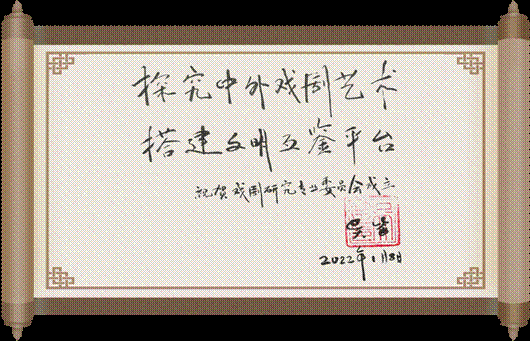 探究中外戏剧艺术
搭建文明互鉴平台
祝贺戏剧研究专业委员会成立
2022年1月8日